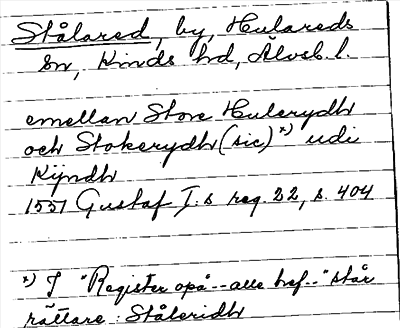 Stålared, by, Hulareds
sn, Kinds hd, Älvsb. l.
emellan Store Hulerydh
och Stokerydh (sic) *) udi
Kijndh
1551 Gustaf I:s reg. 22, s. 404
*) I "Register opå -- alle bref --" står
rättare: Ståleridh